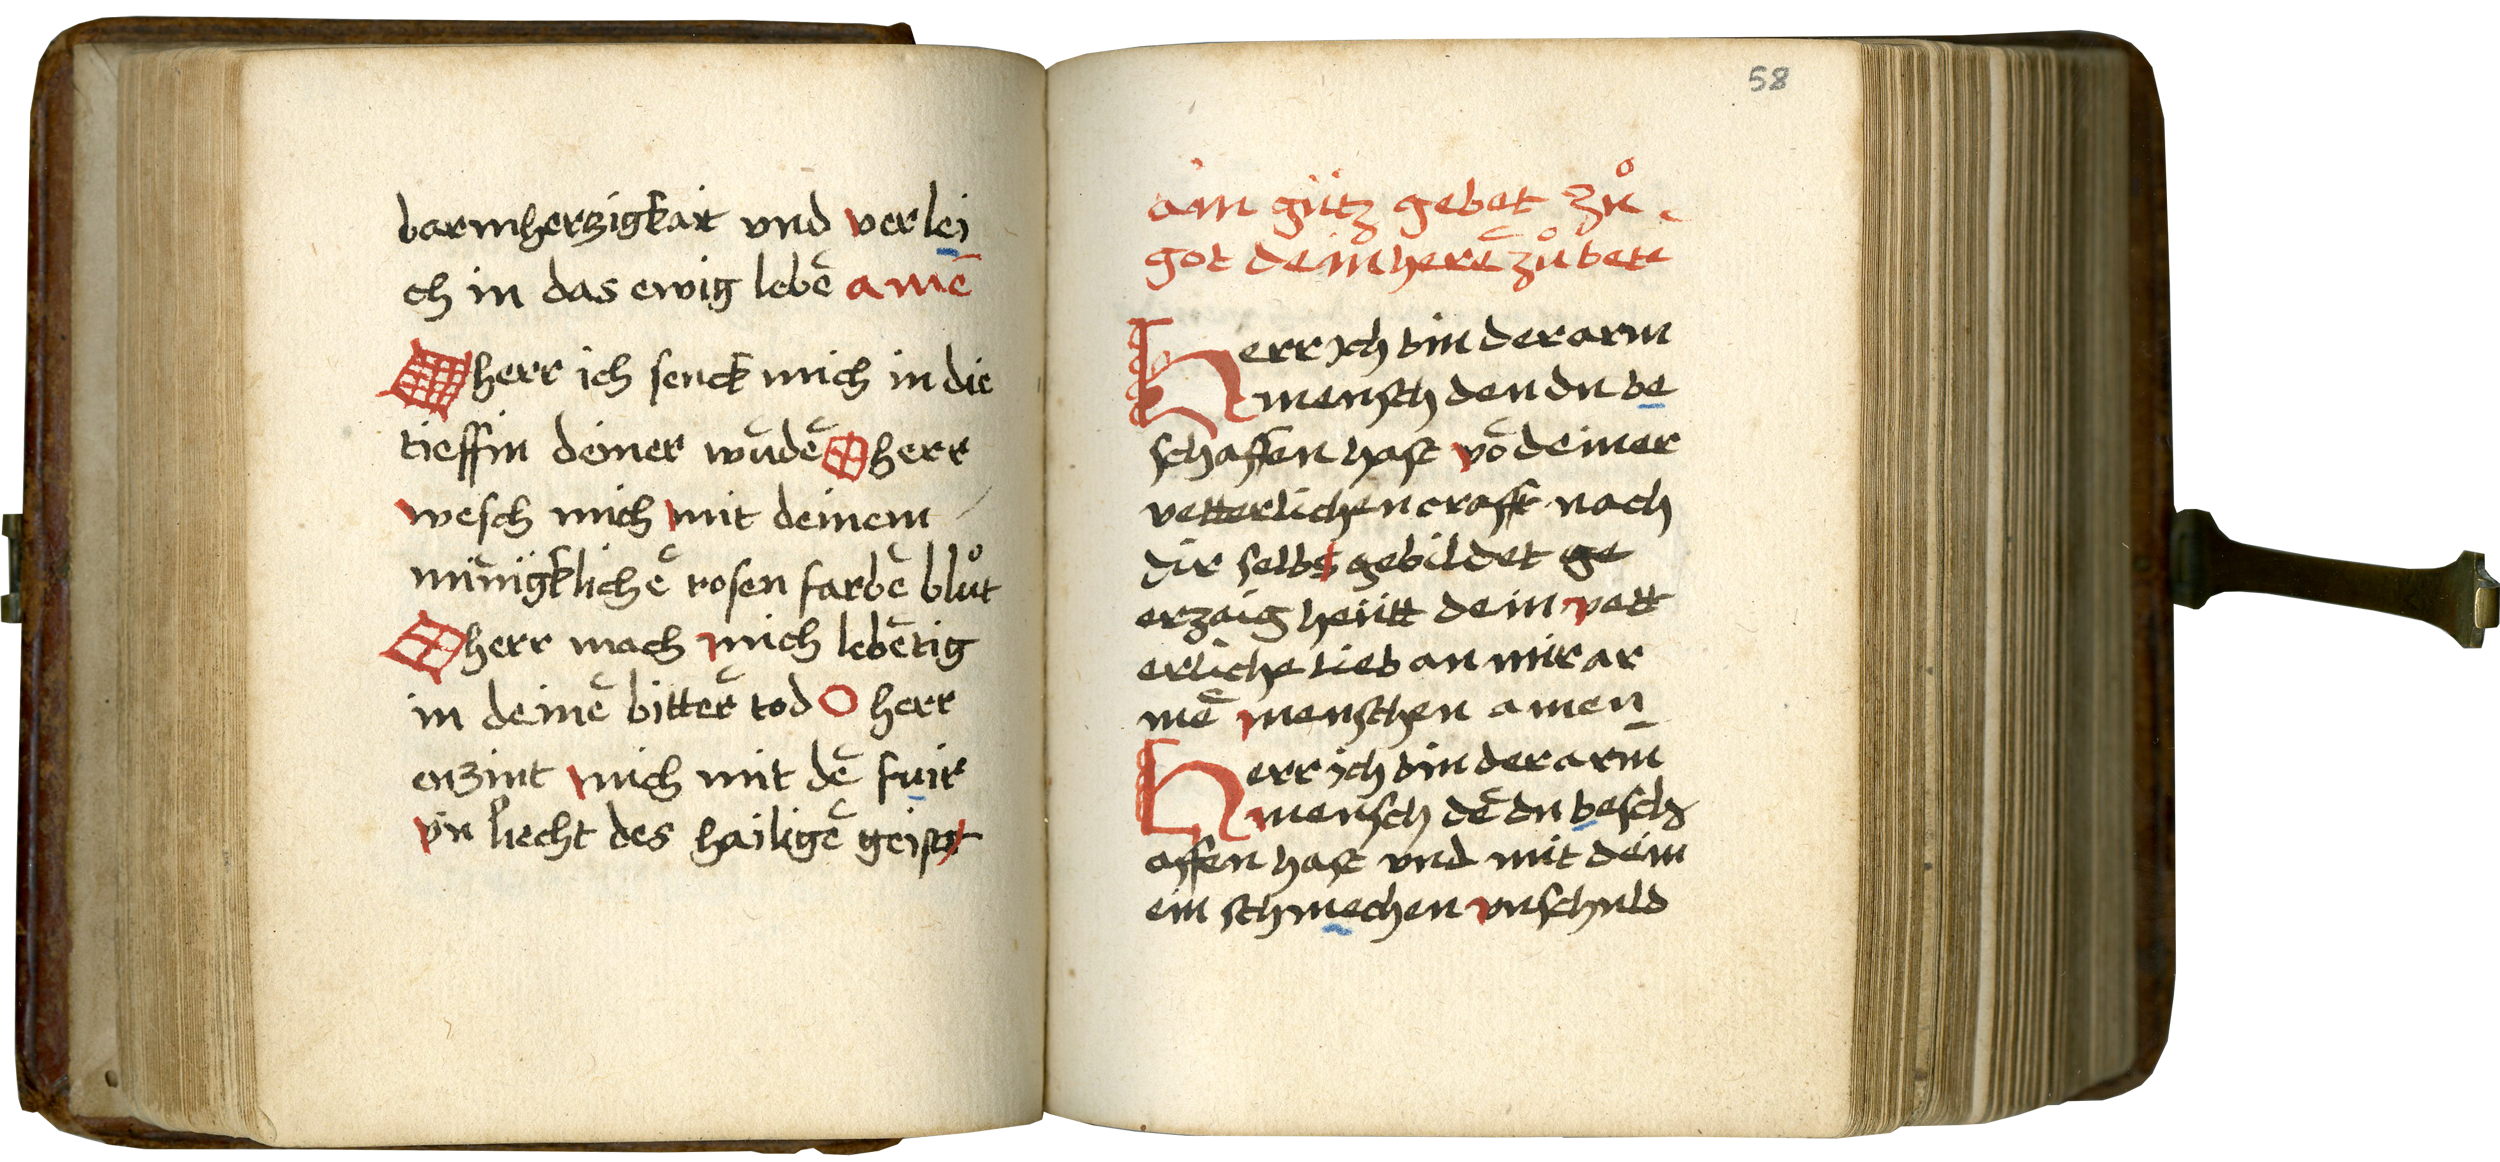 barmherzigkait vnd verlei
ch in das ewig lebē amē
O herr ich senck mich in die
tieffin deiner wūdē O herr
wesch mich mit deinem
miñigklichē rosen farbē blůt
O herr mach mich lebētig
in deinē bitter̄ tod O herr
enzint mich mit dē fuir
vn̄ liecht des hailigē geist
58
ain gütz gebet zů
got deim herē zů bete
Herr ich bin der arm
mensch den du be
schaffen hast vō deiner
vetterlichen crafft nach
dir selbs gebildet ge
erzaig heütt dein vett
erliche lieb an mir ar
mē menschen amen
Herr ich bin der arm̄
mensch dē du besch
affen hast vnd mit deim
ein schmechen vnschuld